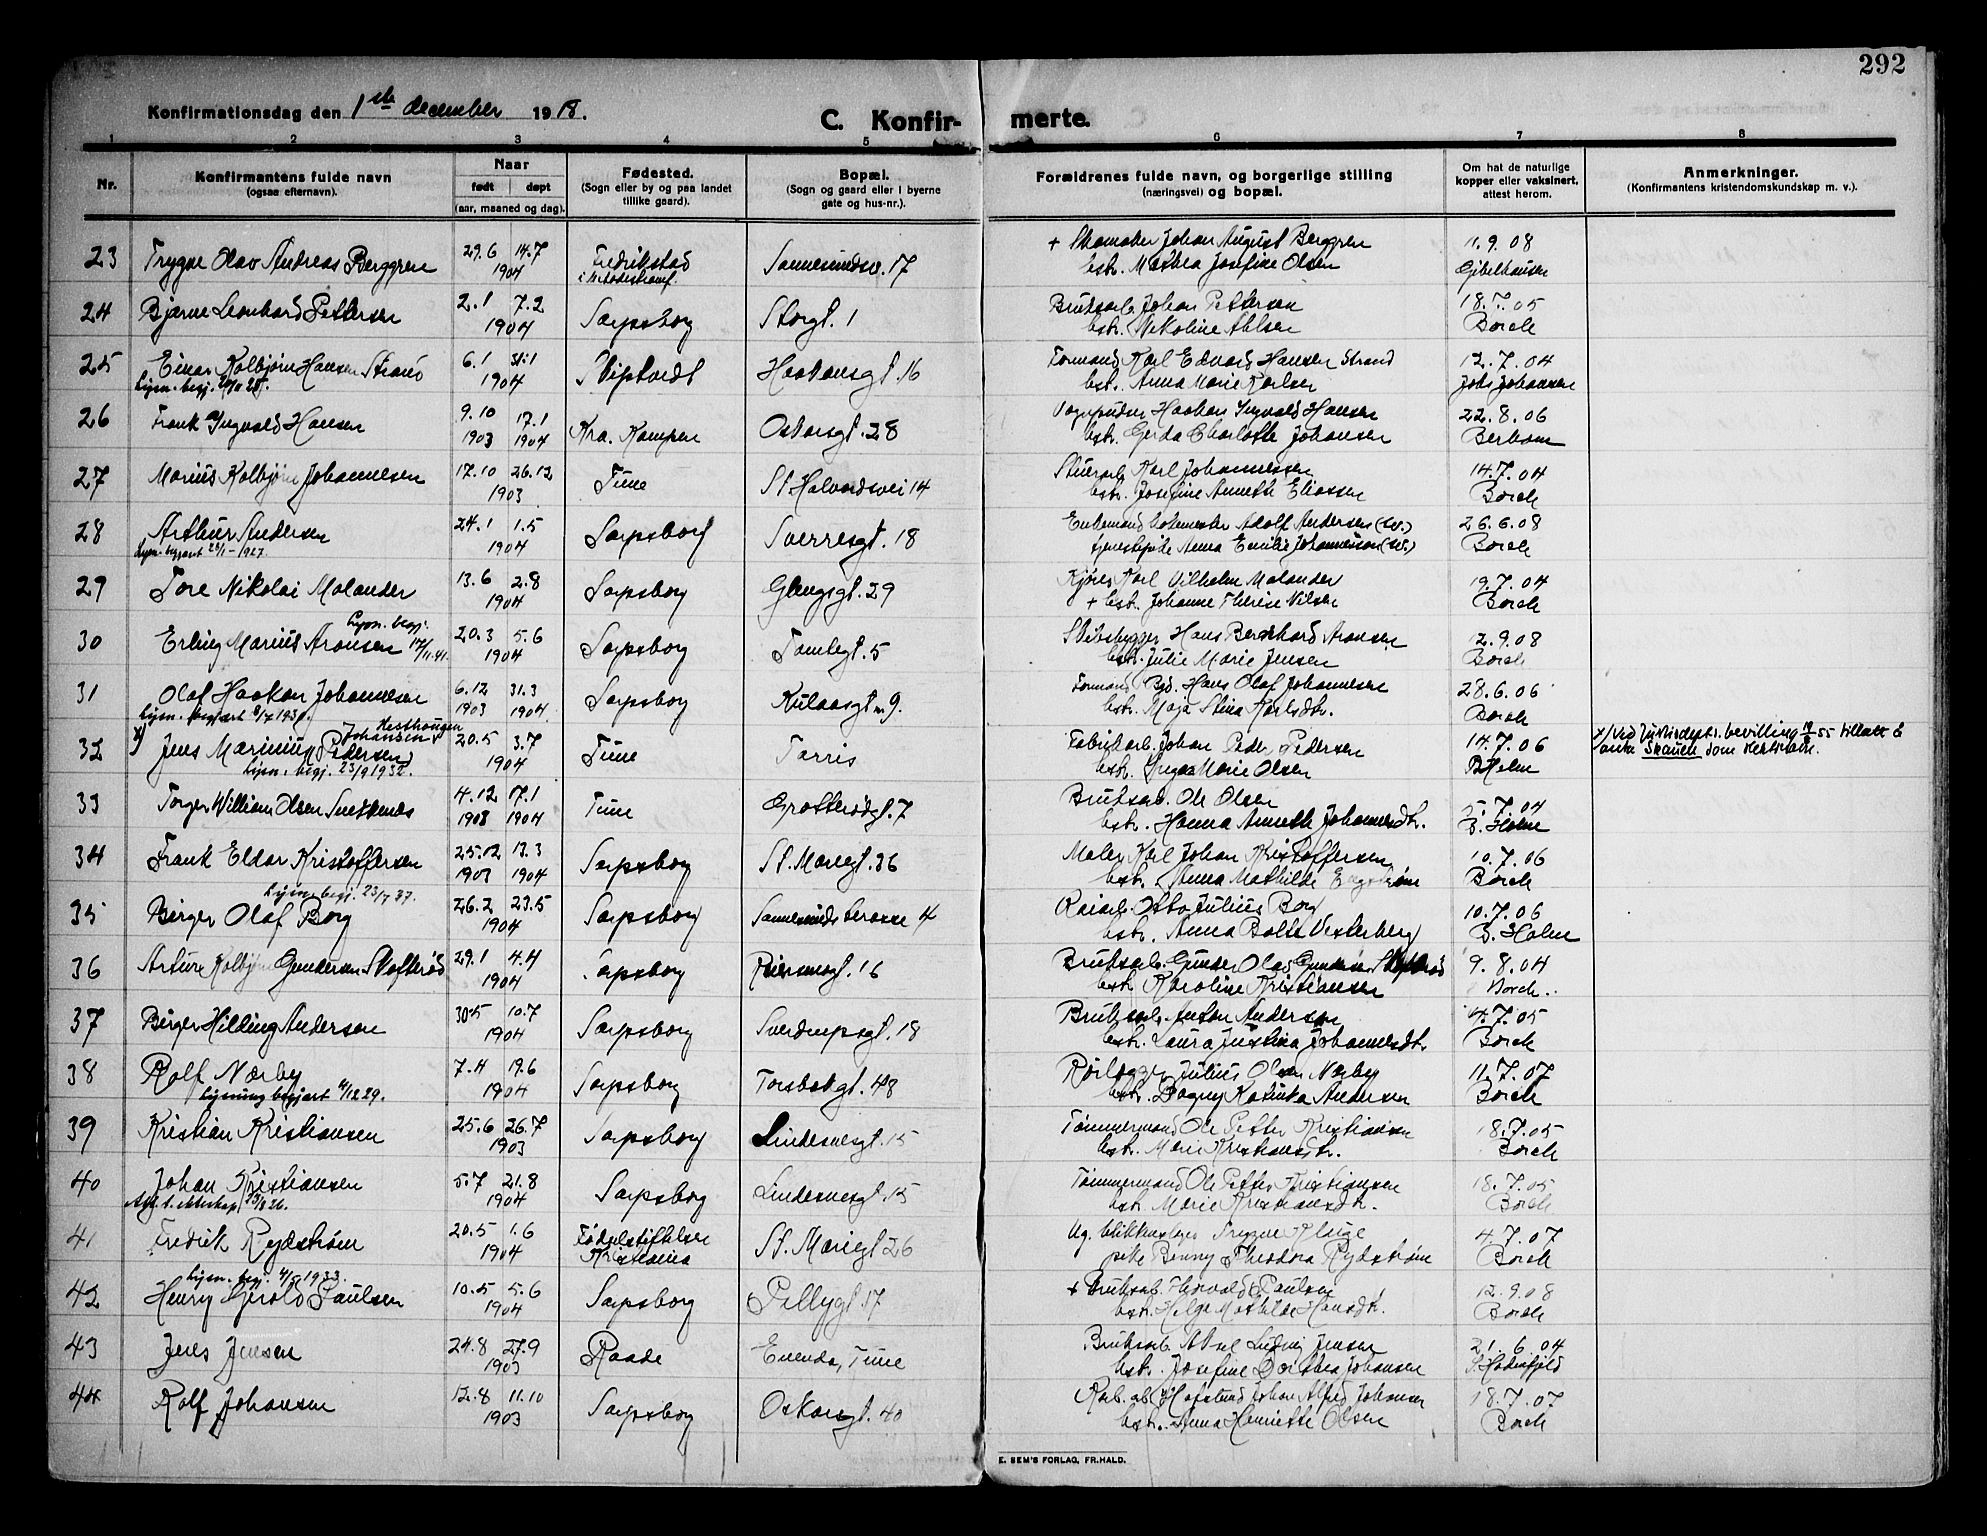 292
Konfirmationsdag den 1ste december 1918.
C. Konfir- merte.
1 2 3 4 5 6 7 8
Nr. Konfirmantens fulde navn (ogsaa efternavn). Naar født døpt (aar, maaned og dag). Fødested. (Sogn eller by og paa landet tillike gaard). Bopæl. (Sogn og gaard eller i byerne gate og hus-nr.). Forældrenes fulde navn, og borgerlige stilling (næringsvei) og bopæl. Om hat de naturlige kopper eller vaksinert, attest herom. Anmerkninger. (Konfirmantens kristendomskundskap m. v.).
23 Trygve Olav Andreas Berggren 29.6 14.7 1904 Fredrikstad i Metodistsamf. Sannesundsv. 17 + Skomaker Johan August Berggren 11.9.08
hstr. Mathea Josefine Olsen
24 Bjarne Leonhard Pettersen 2.1 7.2 1904 Sarpsborg Storgt. 1 Bruksarb. Johan Pettersen 18.7.05
hstr. Nikoline Borch
25 Einar Kolbjørn Hansen Strand 6.1 31.1 1904 Skiptvedt Haakonsgt. 16 Formand Karl Edvard Hansen Strand 12.7.04
Lysn. begj. hstr. Anna Marie Karlsen Johansen
26 Frank Ingvald Hansen 9.10 1903 17.1 1904 Kra. Kampen Oskarsgt. 28 Haakon Ingvald Hansen 22.8.06
hstr. Gerda Charlotte Johansen
27 Marius Kolbjørn Johannesen 17.10 26.12 1903 Tune St. Halvardsvei 14 Karl Johannessen 14.7.04
hstr. Josefine Annette Eliassen Borch
28 Arthur Andersen 24.1 1.5 1904 Sarpsborg Sverresgt. 18 Enkemand Adolf Andersen (sv.) 26.6.08
Lysn. begjært 1927. Anna Emilie Johannesson (sv.) Borch
29 Tore Nikolai Molander 13.6 2.8 1904 Sarpsborg Glengsgt. 29 Karl Vilhelm Molander 19.7.04
+ hstr. Johanne Therese Nilsen Borch
30 Erling Marius Aronsen Lysn. begj. 20.3 5.6 1904 Sarpsborg Tomtegt. 5 Skibsbygger Hans Bernhard Aronsen 2.9.08
hstr. Julie Marie Jensen Borch
31 Olaf Haakon Johannesen 6.12 1903 31.3 1904 Sarpsborg Kulaasgt. 9. Formand Hans Olaf Johannesen 28.6.06
Lysn. begjært hstr. Maja Stina Karlsdtr. Borch
32 Jens Marinius Pedersen Johansen 20.5 3.7 1904 Tune Torris Fabrikarb. Johan Peder Pedersen 14.7.06
Lysn. begj. 23/9 1932. hstr. Inga Marie Olsen B. Holm
33 Torger William Olsen 4.12 17.1 1904 Tune Grotterødgt. 7 Bruksarb. Ole Olsen 5.7.04
hstr. Hanna Annette Johannesdtr. B. Holm
34 Frank Eldar Kristoffersen 25.12 1903 13.3 1904 Sarpsborg St. Mariegt. 36 Maler Karl Johan Kristoffersen 10.7.06
hstr. Anna Mathilde Engstrøm Borch
35 Birger Olaf Borg Lysn. begj. 23/7 37. 26.2 23.5 1904 Sarpsborg Sannesunds terasse 4 Otto Julius Borg 10.7.06
hstr. Anna Bolte Vesterberg B. Holm
36 Arture Kolbjørn Gundersen Skofterød 29.1 4.4 1904 Sarpsborg 16 Bruksarb. Gunder Olav Gundersen Skofterød 9.8.04
hstr. Karoline Kristiansen Borch
37 Birger Hilding Andersen 30.5 10.7 1904 Sarpsborg Sverdrupsgt. 18 Bruksarb. Anton Andersen 4.7.05
hstr. Laura Justina Johannesdtr. Borch
38 Rolf Nærby 7.4 19.6 1904 Sarpsborg Torsbekgt. 48 Rørlægger Julius Olsen Nærby 11.7.07
Lysning begjært 29. hstr. Dagny Katinka Andersen Borch
39 Kristian Kristiansen 25.6 26.7 1903 Sarpsborg Lindesnesgt. 15 Tømmermand Ole Petter Kristiansen 18.7.05
hstr. Marie Kristiansdtr. Borch
40 Johan Kristiansen 5.7 21.8 1904 Sarpsborg Lindesnesgt. 15 Tømmermand Ole Petter Kristiansen 18.7.05
hstr. Marie Kristiansdtr. Borch
41 Fredrik Rydstrøm 20.5 1.6 1904 Fødselsstiftelsen Kristiania St. Mariegt 26 Ug. Trygve 4.7.07
pike Benny Theodora Rydstrøm Borch
42 Henry Gerold Paulsen Lysn. begj. 1933. 10.5 5.6 1904 Sarpsborg Pellygt. 17 + Bruksarb. Thorvald Paulsen 12.9.08
hstr. Helga Mathilde Hansdtr. Borch
43 Jens Jensen 24.8 27.9 1903 Raade Enenda, Tune Bruksarb. Aksel Ludvig Jensen 21.6.04
hstr. Josefine Dorthea Johansen
44 Rolf Johansen 12.8 11.10 1903 Sarpsborg Oskarsgt. 40 Johan Alfred Johansen 18.7.07
hstr. Anna Henriette Olsen Borch
E. SEM'S FORLAG, FR.HALD.